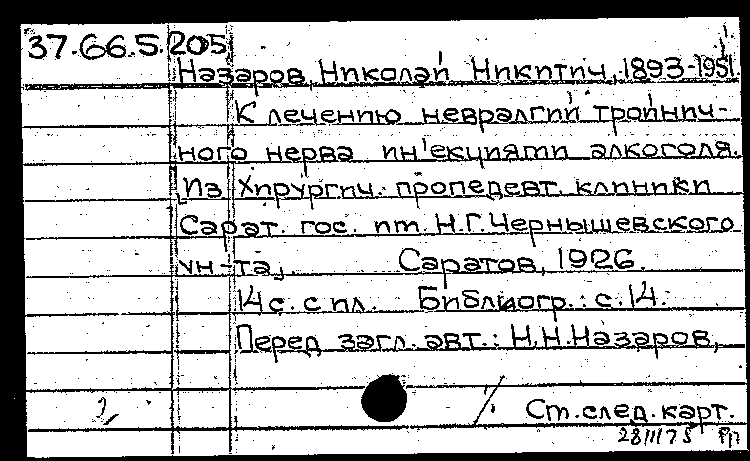 37.66.5.205
Назаров, Николай Никитич, 1893-1951
К лечению невралгий тройнич-
ного нерва ин'екциями алкоголя.
[Из Хирургич. пропедевт. клиники
Сарат. гос. им. Н.Г. Чернышевского
ун-та].   Саратов, 1926.
14 с. с ил.   Библиогр.: с. 14.
Перед загл. авт.: Н.Н. Назаров,
Ст. след. карт.